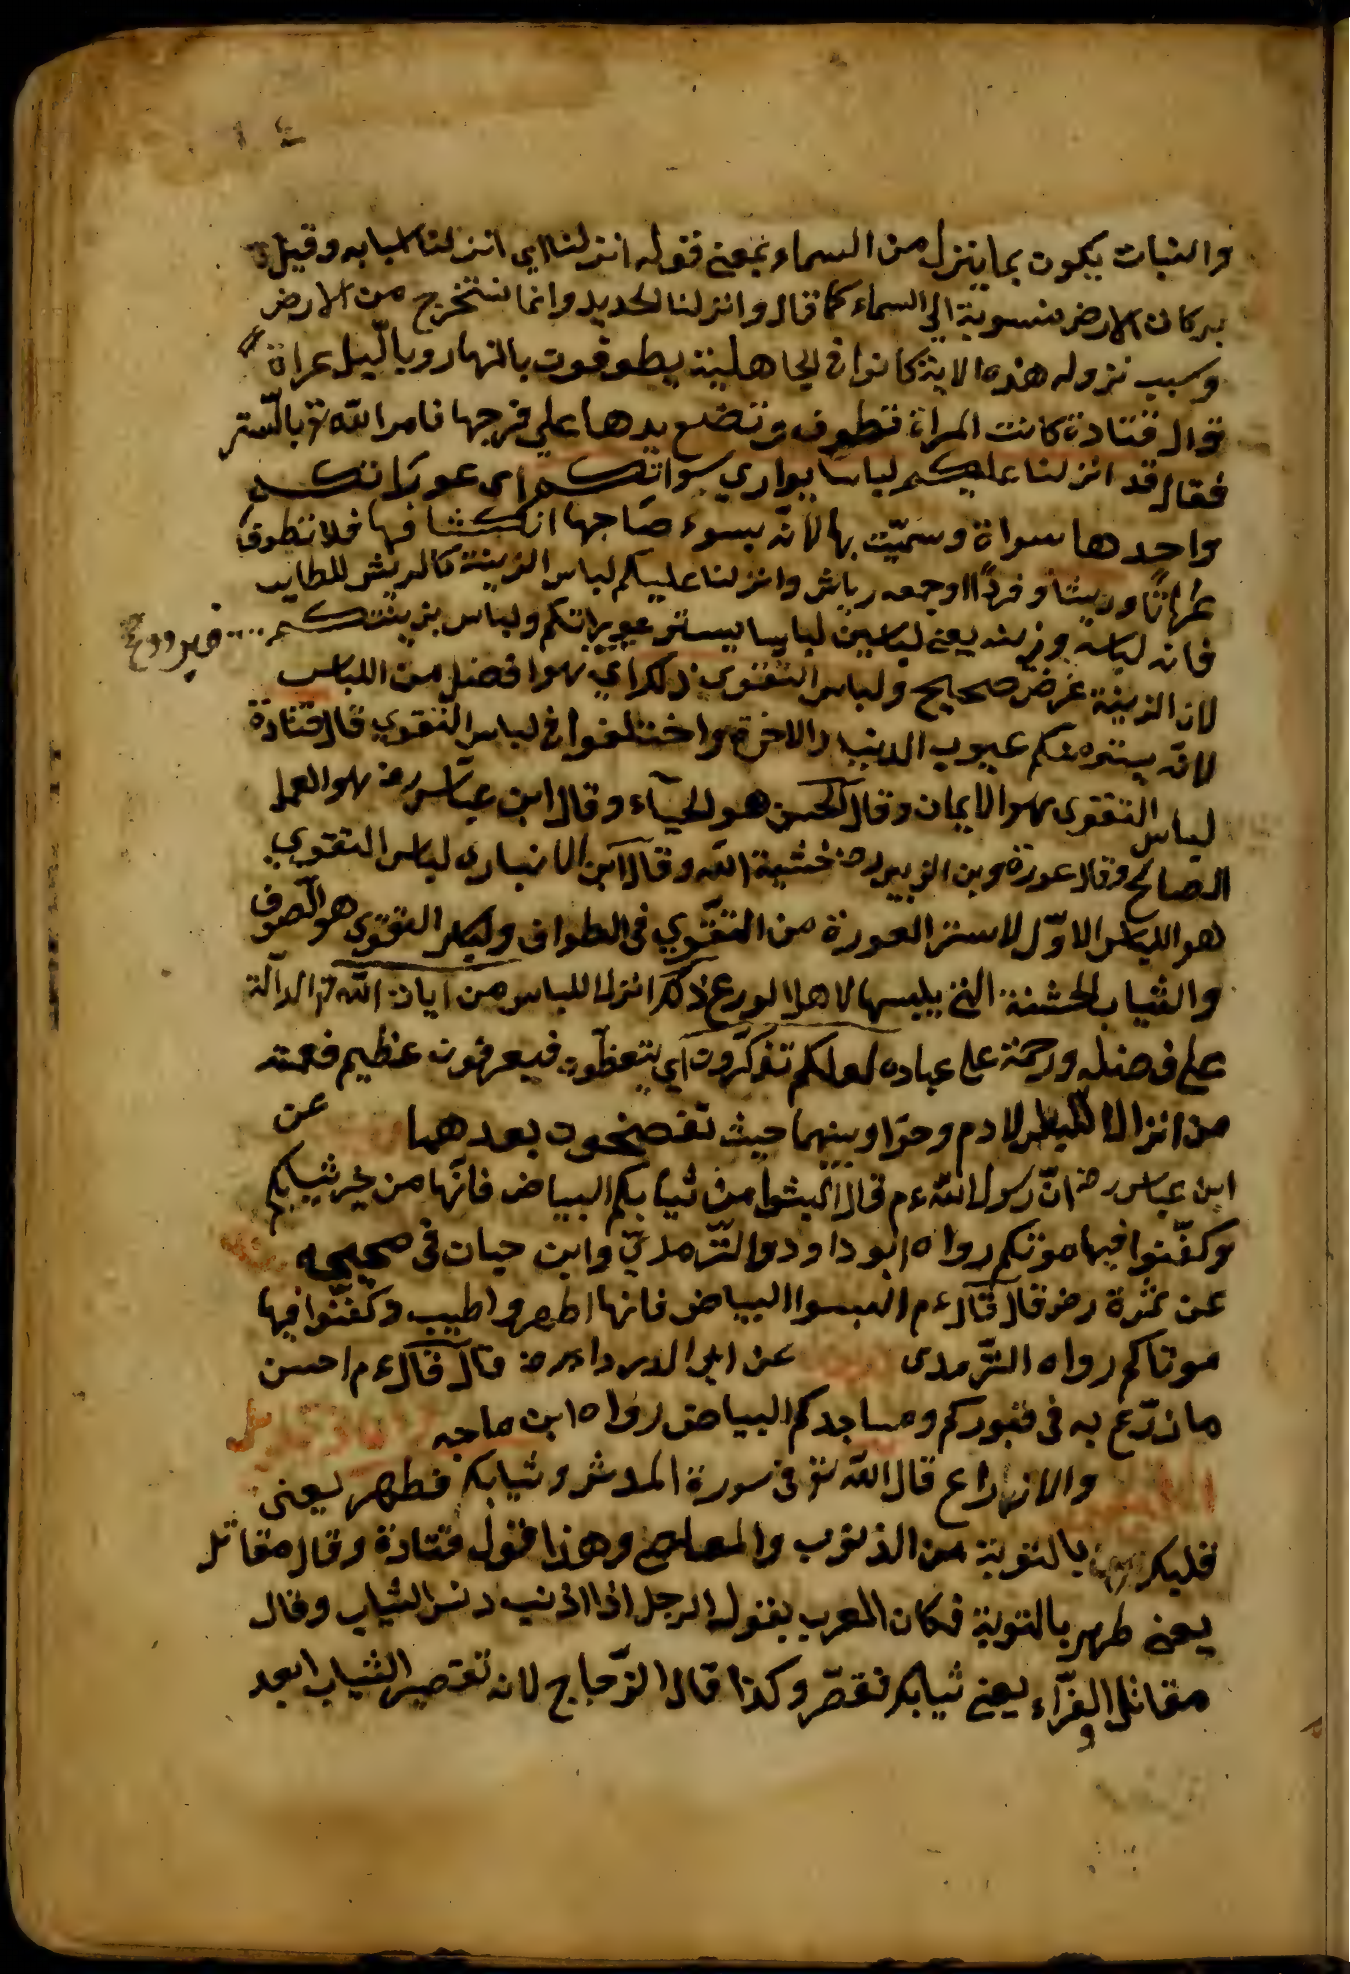 والنبات يكون بما ينزل من السماء فمعنى قوله انزلنا اي انزلنا اسبابه وقيل
بركات الارض منسوبة الي السماء كما قال وانزلنا الحديد وانما نستخرج من الارض
وسبب نزوله هذه الاية كانوا في الجاهلية يطوفون بالنهار وبالّليل عراة
قال قتادة كانت المراة تطوف وتضع يدها علي فرجها فامر الله تع بالستر
فقال قد انزلنا عليكم لباسا يواري سواتكم اى عوراتكم
واحدها سواة وسمّيت بها لانه يسوء صاحبها انكشافها فلا تطوف
عراتًا وريشًا وفردًا اوجمعه رياش وانزلنا عليكم لباس الزينة كالريش للطاير
فانه لباسه وزينه يعنى لباسين لباسا يستر عوراتكم ولباس يزينتكم
لان الزينة غرض صحيح ولباس التقوى ذلك اي هو افضل من اللباس
لانه يستر عنكم عيوب الدنيا والاخرة واختلفوا في لباس التقوي قال قتادة
لباس التقوى هو الايمان وقال الحسن هو الحيآء وقال ابن عبّاس رض هو العمل
الصالح وقال عورة وبن الزبير رض خشية الله وقال ابن الانبارى لباس التقوي
هو اللباس الاوّل لاستر العورة من التقوي في الطواف ولباس التقوى هو الصوف
والثياب الخشنة التي يلبسها لاهل الورع ذلك انزل اللباس من آيات الله تع الدآلة
على فضله ورحمة على عباده لعلكم تذكّرون اي يتعظون فيعرفون عظيم نعمته
من انزال اللباس لادم وحوّا وبينهما حيث تفضحون بعدهما عن
ابن عباس رض انّ رسول الله ءم قال البسوا من ثيابكم البياض فانّها من خير ثيابكم
وكفّنوا فيها موتكم رواه ابو داود والتّرمذيّ وابن حبان فى صحيحه
عن سمرة رض قال قال ءم البسوا البياض فانها اطهر واطيب وكفّنوا فيها
موتاكم رواه التّرمدى عن ابى الدرداء رض قال قال ءم احسن
ما زرتم به فى قبوركم ومساجدكم البياض رواه ابن ماجه
والانواع قال الله تع فى سورة المدثر وثيابك فطهر يعنى
قلبك بالتوبة من الذنوب والمعاصي وهذا قول قتادة وقال مقاتل
يعنى طهر بالتوبة فكان العرب يقول الرجل اذا اذنب دنس الثياب وقال
مقاتل والفرّاء يعنى ثيابك فقصّر وكذا قال الزّجاج لان تقصير الثياب ابعد